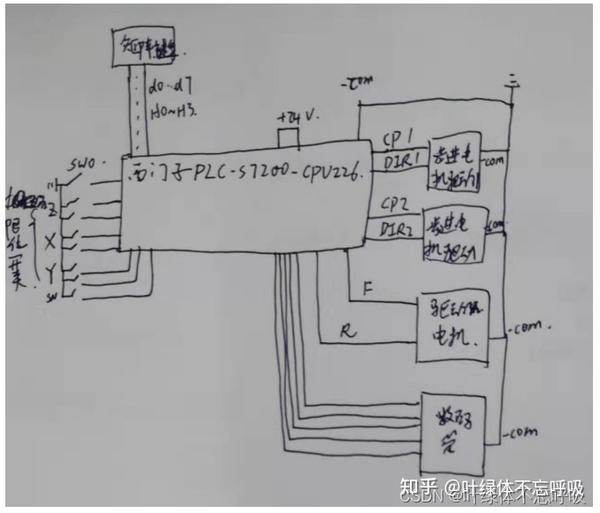 矩阵键盘
d0~d7
H0~H3
+24V
-com
SW0
西门子PLC-S7200-CPU226
CP1
DIR1
步进电机驱动1
-com
CP2
DIR2
步进电机驱动
-com
Z
限位开关
X
Y
SW
F
R
驱动
电机
-com
数码管
-com
知乎 @叶绿体不忘呼吸
CSDN @叶绿体不忘呼吸